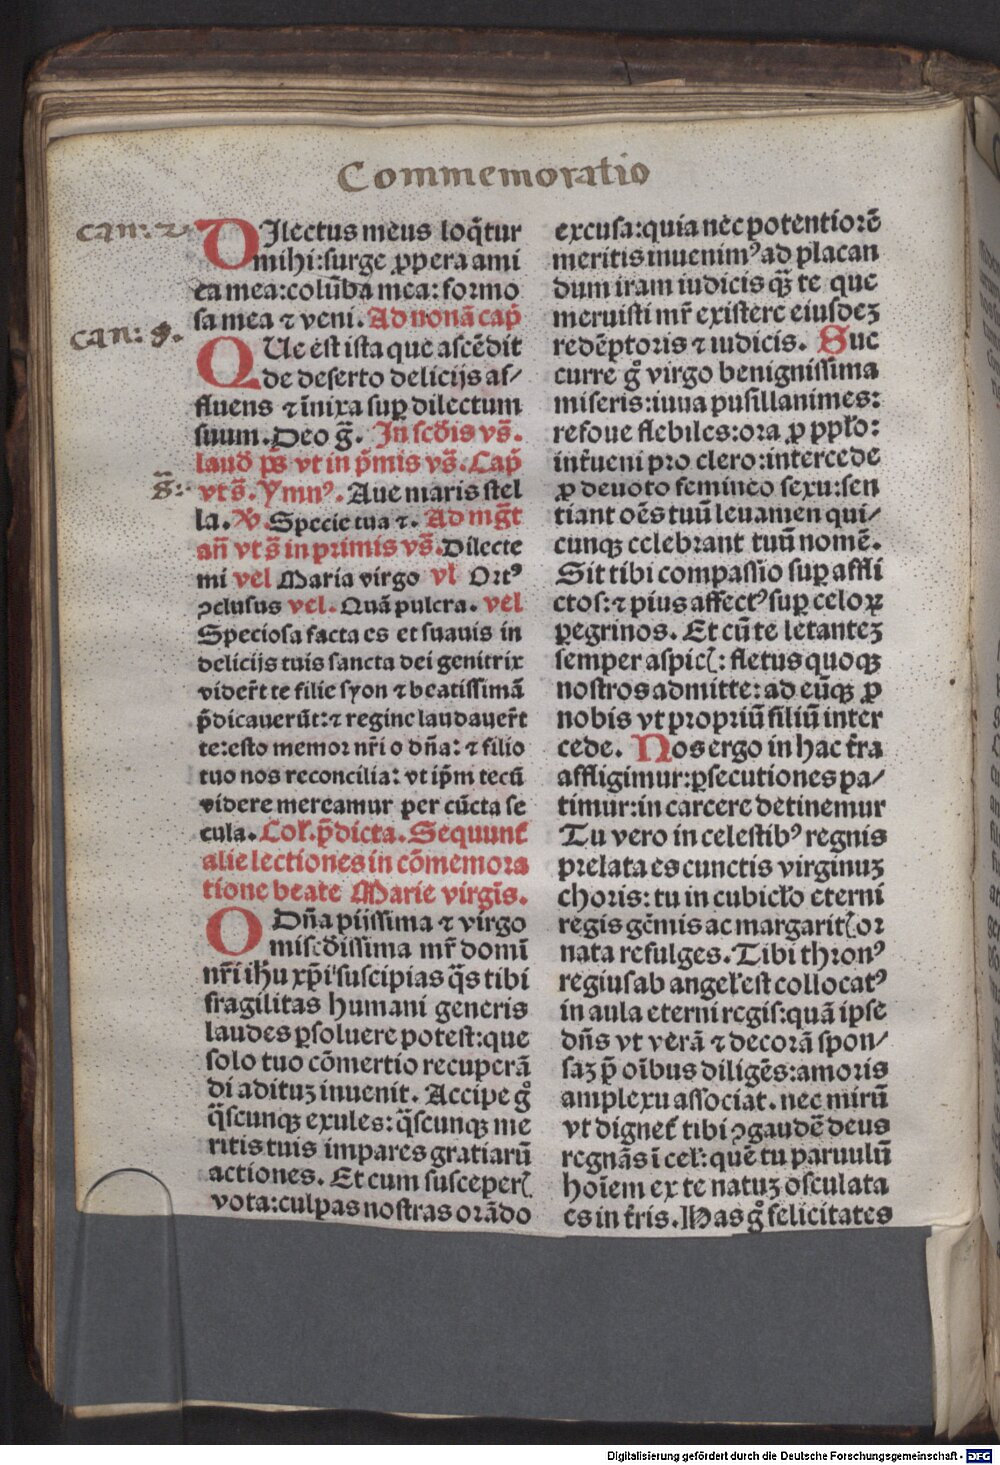 Commemoratio
can: 2.
DIlectus meus loq̃tur
mihi:surge ꝓpera ami
ca mea:colũba mea: formo
sa mea ⁊ veni. Ad nonã cap̃
can: 8.
QUe est ista que ascẽdit
de deserto delicijs af⸗
fluens ⁊ ĩnixa suꝑ dilectum
suum. Deo g̃. In scd̃is vs̃.
laud̃ ps̃ vt in p̃mis vs̃. Cap̃
s̃:
vts̃. Ymnꝰ. Aue maris stel
la. V̄. Specie tua ⁊. Ad mg̃t
añ vt s̃ in primis vs̃. Dilecte
mi vel Maria virgo vl̃ Ortꝰ
ꝯclusus vel. Quã pulcra. vel
Speciosa facta es et suauis in
delicijs tuis sancta dei genitrix
vider̃t te filie syon ⁊ beatissimã
p̃dicauerũt: ⁊ regine laudauer̃t
te: esto memor nr̃i o dña: ⁊ filio
tuo nos reconcilia: vt ip̃m tecũ
videre mereamur per cũcta se
cula. Col̃. p̃dicta. Sequunt̃
alie lectiones in cõmemora
tione beate Marie virgĩs.
O Dña pijssima ⁊ virgo
miscd̃issima mr̃ domĩ
nr̃i ih̃u xp̃i suscipias q̃s tibi
fragilitas humani generis
laudes ꝑsoluere potest: que
solo tuo cõmertio recuperã
di adituꝫ inuenit. Accipe gͦ
q̃scunqꝫ exules: q̃scunqꝫ me
ritis tuis impares gratiarũ
actiones. Et cum susceperꝭ
vota: culpas nostras orãdo
excusa: quia nec potentiorẽ
meritis inuenimꝰ ad placan
dum iram iudicis qꝫ̃ te que
meruisti mr̃ existere eiusdeꝫ
redẽptoris ⁊ iudicis. Suc
curre gͦ virgo benignissima
miseris: iuua pusillanimes:
refoue flebiles: ora ꝓ ppl̃o:
int̃ueni pro clero: intercede
ꝓ deuoto femineo sexu: sen
tiant oẽs tuũ leuamen qui⸗
cunqꝫ celebrant tuũ nomẽ.
Sit tibi compassio suꝑ affli
ctos: ⁊ pius affectꝰ suꝑ celoꝝ
ꝑegrinos. Et cũ te letanteꝫ
semper aspicꝭ: fletus quoqꝫ
nostros admitte: ad eũqꝫ ꝓ
nobis vt propriũ filiũ inter
cede. Nos ergo in hac t̃ra
affligimur: ꝑsecutiones pa⸗
timur: in carcere detinemur
Tu vero in celestibꝰ regnis
prelata es cunctis virginuꝫ
choris: tu in cubicl̃o eterni
regis gẽmis ac margaritꝭ or
nata refulges. Tibi thronꝰ
regius ab angel̃ est collocatꝰ
in aula eterni regis: quã ipse
dñs vt verã ⁊ decorã spon⸗
saꝫ p̃ oĩbus diligẽs: amoris
amplexu associãt. nec mirũ
vt dignet̃ tibi ꝯgaudẽ deus
regnãs ĩ cel̃: quẽ tu paruulũ
hoĩem ex te natuꝫ osculata
es in t̃ris. Has gͦ felicitates
Digitalisierung gefördert durch die Deutsche Forschungsgemeinschaft - DFG